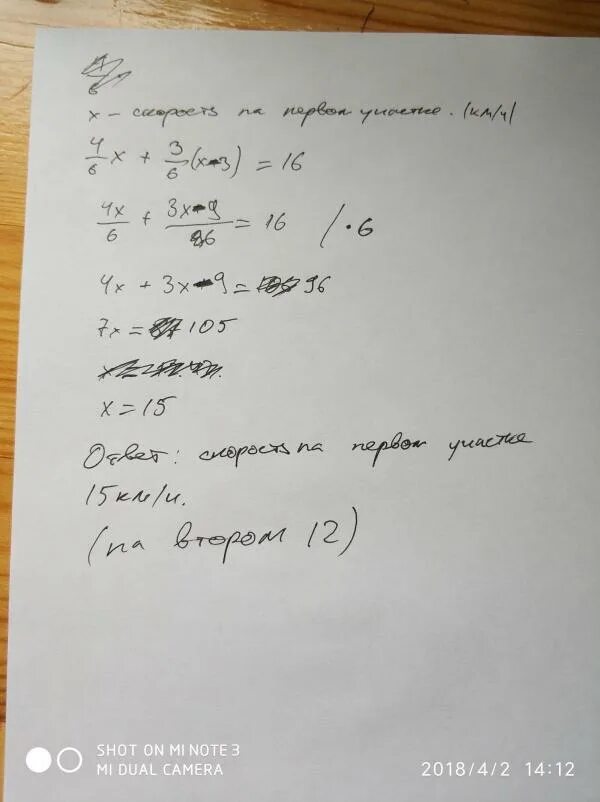 6
x – скорость на первом участке. (км/ч)
4/6 x + 3/6 (x-3) = 16
4x/6 + 3x-9/6 = 16 / · 6
4x + 3x-9 = 96
7x = 105
x = 15
Ответ: скорость на первом участке
15 км/ч.
(на втором 12)
SHOT ON MI NOTE 3
MI DUAL CAMERA
2018/4/2 14:12